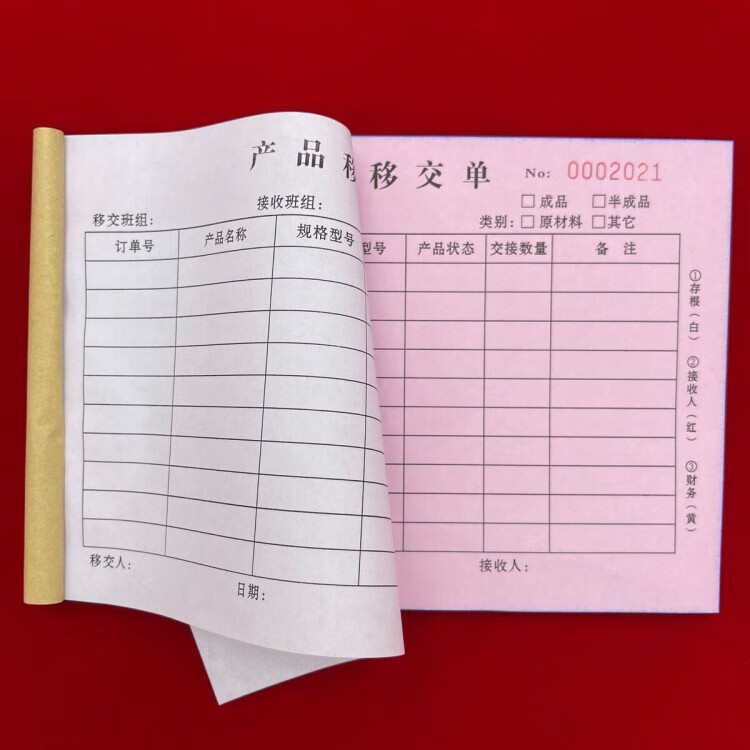 产品移
接收班组：
移交班组：
订单号 产品名称 规格型号
移交人：
日期：
移交单 No: 0002021
□成品 □半成品
类别：□原材料 □其它
型号 产品状态 交接数量 备 注
接收人：
①存根（白） ②接收人（红） ③财务（黄）